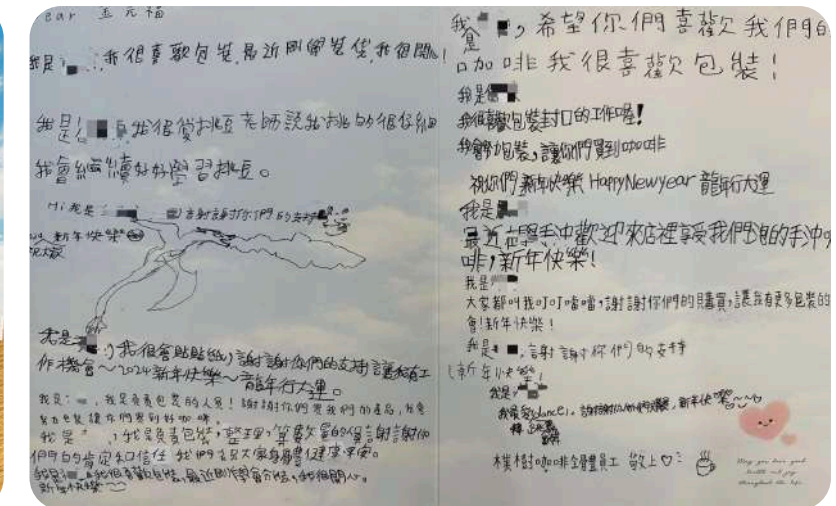 ear 金元福
我是 我很喜歡包裝,最近剛學裝袋,我很開心!
我是 我很愛挑豆老師說我挑的很仔細
我會繼續好好學習挑豆。
Hi 我是 謝謝你們的支持
新年快樂
祝大家
我是 我很會貼貼紙,謝謝你們的支持讓我有工
作機會～2024新年快樂～龍年行大運。
我是 我是負責包裝的人員!謝謝你們買我們的產品,我會
努力包裝讓你們買到好咖啡
我是 我是負責包裝,整理,謝謝你
們的肯定和信任 我們祝大家身體健康平安。
我是 我很喜歡包裝,最近剛學會分裝,我很開心。
新年快樂～～
我是 ,希望你們喜歡我們的
咖啡我很喜歡包裝!
我是
我很喜歡包裝封口的工作喔!
我會努力包裝,讓你們買到咖啡
祝你們新年快樂 HappyNewyear 龍年行大運
我是
最近在學手沖歡迎來店裡享受我們泡的手沖咖
啡,新年快樂!
我是
大家都叫我叮叮噹噹,謝謝你們的購買,讓我有更多包裝的
會!新年快樂!
我是 ,謝謝你們的支持
新年快樂!
我是
我最愛dance, 謝謝你們的 新年快樂～～
樸樹咖啡全體員工 敬上♡
May you have good
health and joy
throughout the life